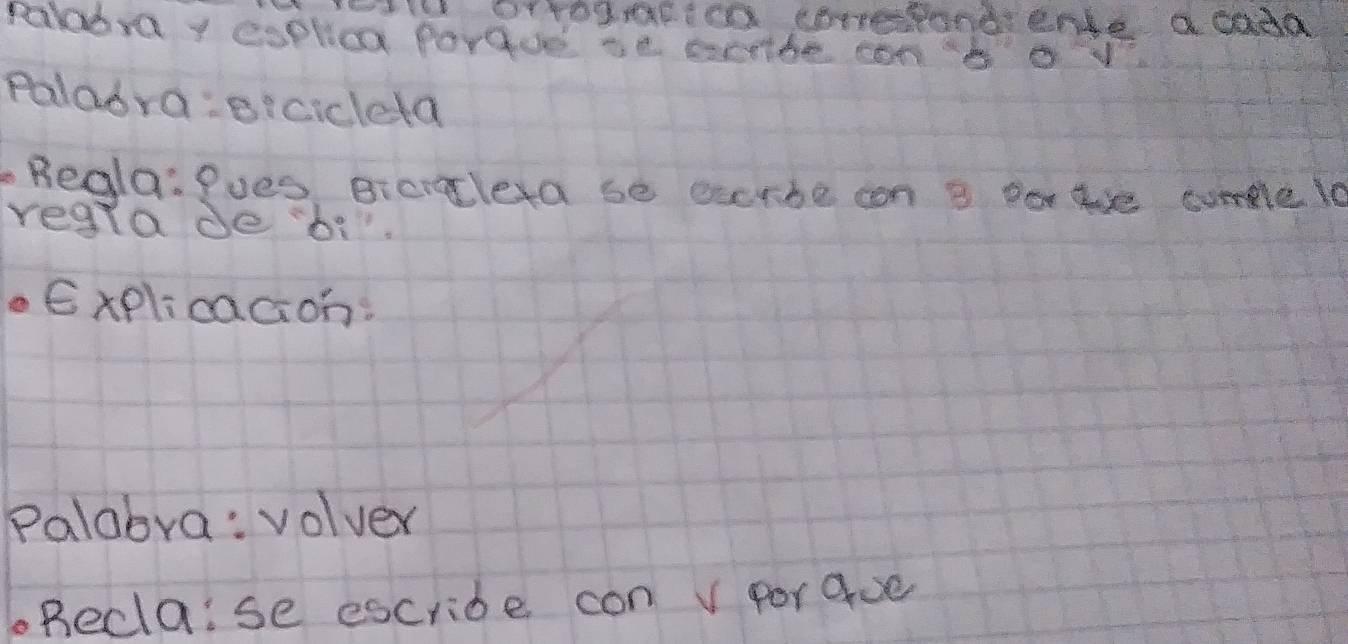 ortografica correspondiente a cada
Palabra y explica porqué se escribe con b o v.
Palabra: Bicicleta
Regla: Pues Bicicleta se escribe con B por que cumple la
regla de "bi".
Explicación:
Palabra: volver
Recla: se escribe con v por que